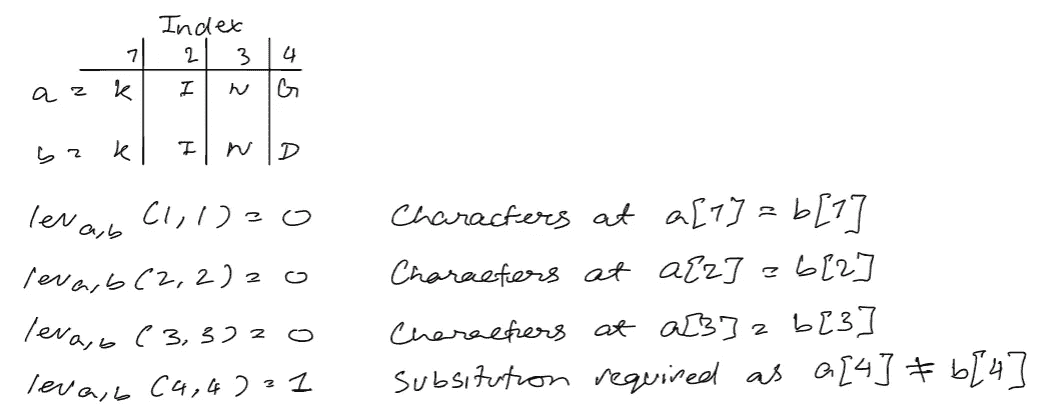 Index
1 2 3 4
a = K I N G
b = K I N D
lev a,b (1,1) = 0 Characters at a[1] = b[1]
lev a,b (2,2) = 0 Characters at a[2] = b[2]
lev a,b (3,3) = 0 Characters at a[3] = b[3]
lev a,b (4,4) = 1 Subsitution required as a[4] ≠ b[4]